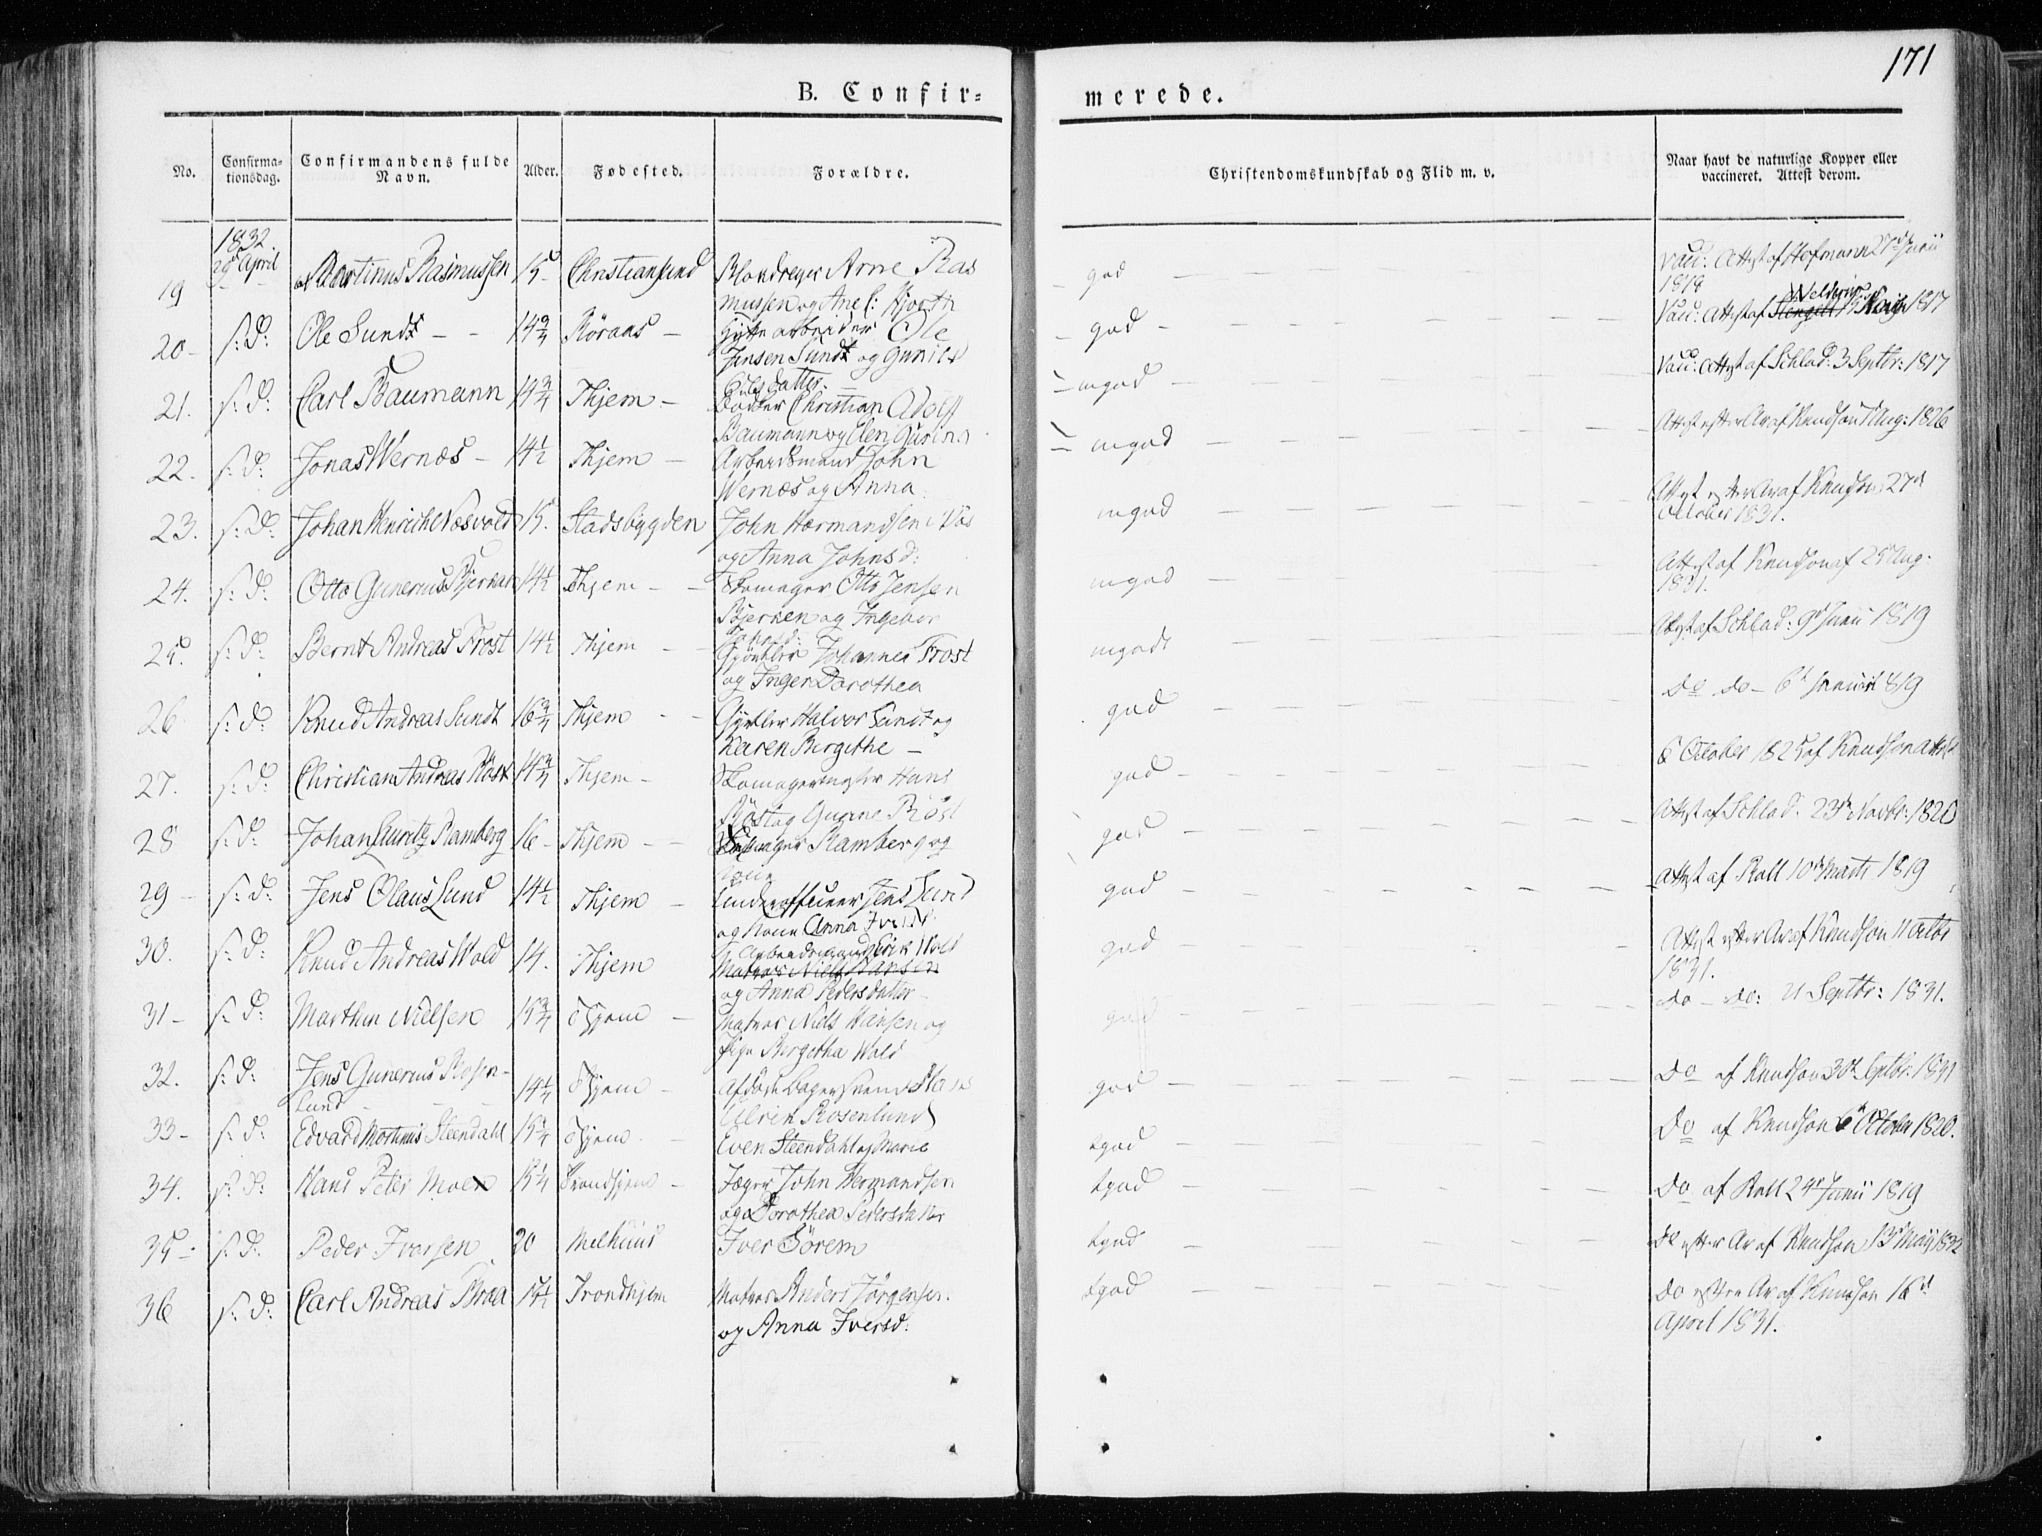 171
B. Confir=
merede.
No.
Confirma-
tionsdag.
Confirmandens fulde
Navn.
Alder.
Fødested.
Forældre.
Christendomskundskab og Flid m. v.
Naar havt de naturlige Kopper eller
vaccineret. Attest derom.
1832
29 April
19 Martinus Rasmussen 15 Christiansund Arne Ras
mussen og Ane C: Hjorth
god
Vacc: Attest af Hofmann 27 Junii
1818
20 - s: d: Ole Sundt - - 14 3/4 Röraas - Hytte arbeider Ole
Jensen Sundt og Gunild
Olsdatter.
god
Vacc: Attest af 1817
21. s: d: Carl Baumann 14 3/4 Thjem - Christian Adolf
Baumann og Elen Gurina
mgod
Vacc: Attest af Schlad: 3 Septbr: 1817
22. s: d: Jonas Wernæs - 14 1/2 Thjem - Arbeidsmand John
Wernæs og Anna
mgod
Attest efter Ar af Knudson Aug: 1826
23. s: d: Johan Henrich Næsvold 15. Stadsbygden John Hermandsen
og Anna Johnsd:
mgod
Attest efter Ar af Knudson 27d
October 1831.
24. s: d: Otto Gunerius Bjerkan 14 1/2 Thjem - - Skomager Otto Jensen
Bjerken og Ingebor
mgod
Attest af Knudson af 25 Aug.
1831.
25. s: d: Bernt Andreas Frost 14 1/2 Thjem - - Gjörtler Johannes Frost
og Inger Dorothea
mgodt
Attest af Schlad: 9d Junii 1819
26 s: d: Knud Andreas Sundt 16 3/4 Thjem - - Gjörtler Halvor Sundt og
Karen Bergithe -
god
Do Do - 6t Januar 1819
27. s: d: Christian Andreas Röst 14 3/4 Thjem - Skomagermester Hans
Röst og Gurine Röst
god
6 October 1825 af Knudson attest
28 s: d: Johan Lauritz Ramberg 16 - Thjem - - Ramberg og
Kone
god
Attest af Schlad. 23de Novbr: 1820
29 - s: d: Jens Olaus Lund 14 1/2 Thjem - Underofficeer Jens Lund
og Kone Anna
god
Attest af Roll 10de Marts 1819
30. s: d: Knud Andreas Wold 14. Thjem Arbeidsmand Erik Wold
Matros Niels Hansen
og Anna Pedersdatter
god
Attest efter Ar af Knudson 11 Octbr
1831.
31 - s: d: Marthin Nielsen 15 3/4 Thjem - Matros Niels Hansen og
Bergitha Wold
god
Do - Do: 21 Septbr: 1831.
32. s: d: Jens Gunerius Rosen-
lund - 14 1/4 Thjem - afdöde Hans
Ulrik Rosenlund
god
Do af Knudson 30te Septbr: 1831
33 - s: d: Edvard Mortinus Steendahl 15 1/4 Thjem - Even Steendahl og Marie
tgod
Do af Knudson 6 October 1820.
34. s: d: Hans Peter Moe 15 1/4 Trondhjem - Jæger John Hermandsen
og Dorothea Pedersdatter
tgod
Do af Roll 24de Junii 1819
35 - s: d: Peder Iversen 20 Melhuus Iver Sörem
tgod
Do efter Ar af Knudson 13 May 1832
36 s: d: Carl Andreas Braa 15 1/2 Trondhjem Matros Anders Jörgensen
og Anna Iversd:
tgod
Do efter Ar af Knudson 16d
April 1831.